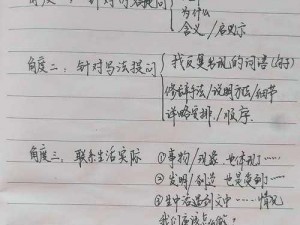 角度一：针对内容提问
为什么
含义/启示
角度二：针对写法提问
找反复出现的词语(句子)
修辞手法/说明方法/细节
详略安排/顺序
角度三：联系生活实际
①事物/现象 也体现……
②发明/创造 也是受到……
③生中活遇到文中……情况
我们应该怎么做？